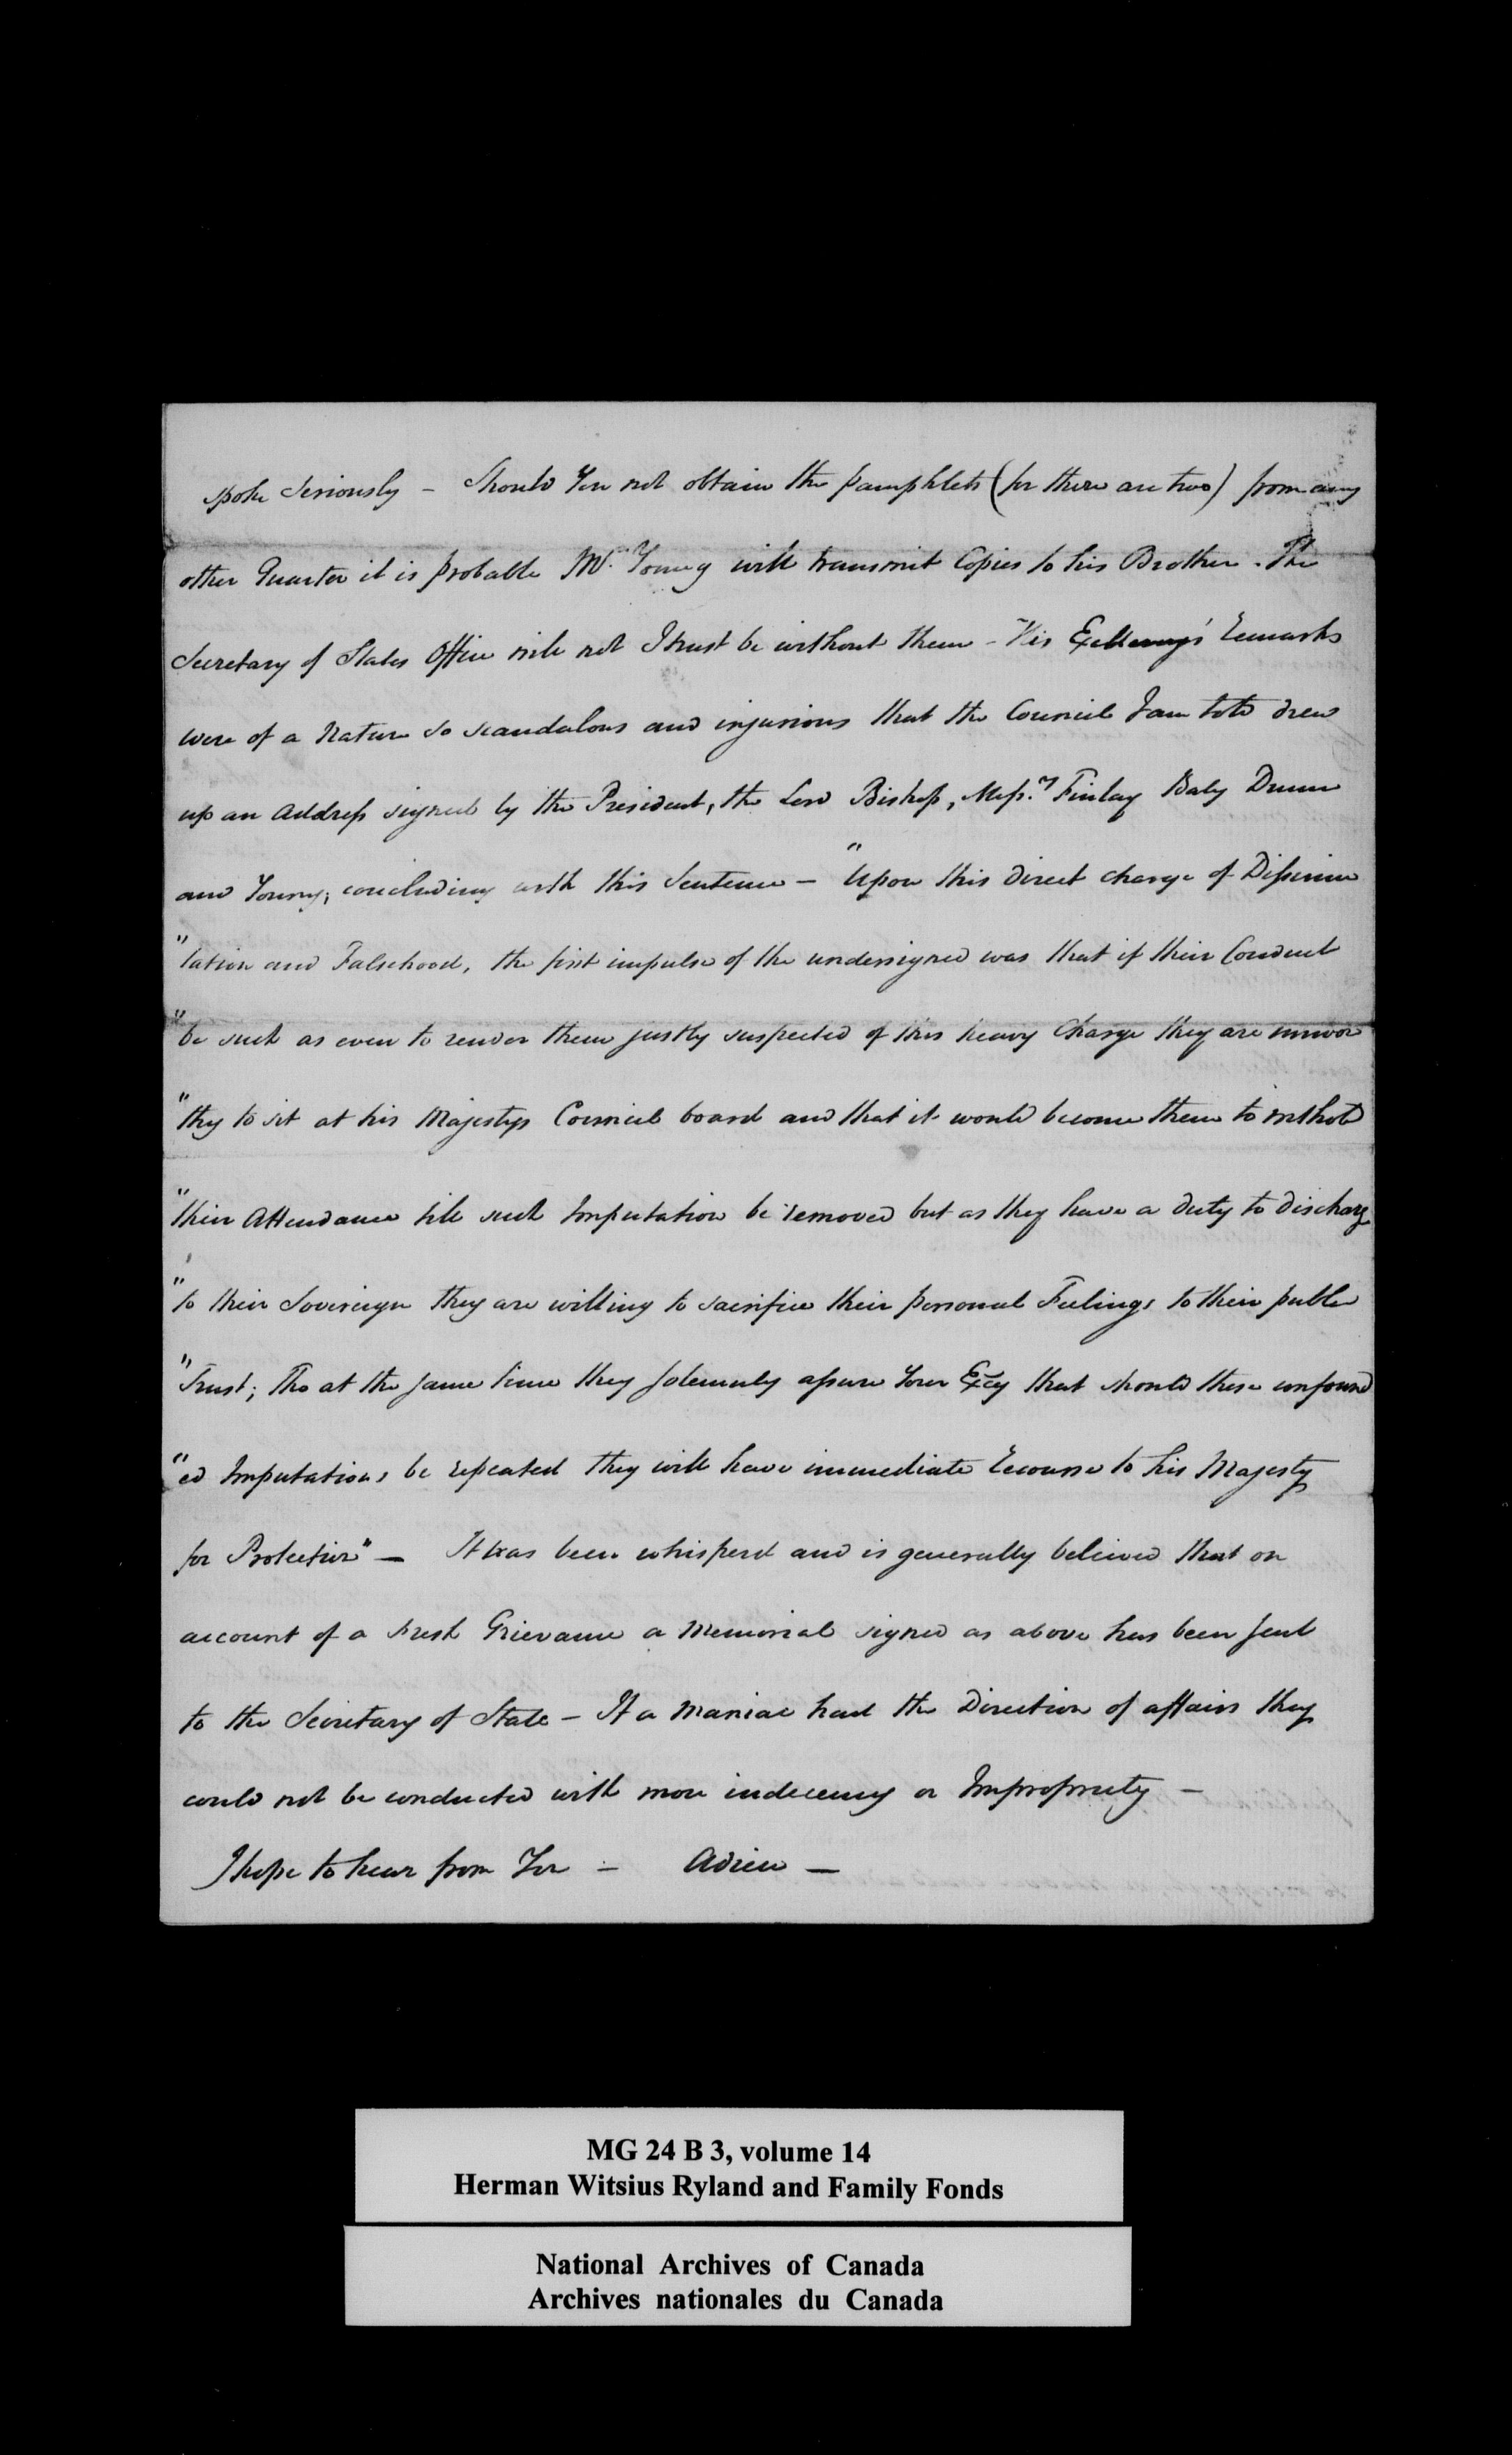 spoke seriously – Should You not obtain the pamphlets (for there are two) from any
other Quarter it is probable Mr. Young will transmit Copies to his Brother. The
Secretary of States Office will not I trust be without them – His Excellency's Remarks
were of a Nature so scandalous and injurious that the Council I am told drew
up an Address signed by the President, the Lord Bishop, Mess.rs Finlay Baby Dunn
and Young, concluding with this Sentence – "Upon this direct charge of Dissimu
"lation and Falsehood, the first impulse of the undersigned was that if their Conduct
"be such as even to render them justly suspected of this heavy Charge they are unwor
"thy to sit at his Majestys Council board and that it would become them to withold
"their Attendance till such Imputation be removed but as they have a duty to discharge
"to their Sovereign they are willing to sacrifice their personal Feelings to their public
"Trust; Tho at the same time they solemnly assure Your Excy that should these unfound
"ed Imputations be repeated they will have immediate Recourse to his Majesty
for Protection" – It has been whisperd and is generally believed that on
account of a fresh Grievance a Memorial signed as above has been sent
to the Secretary of State – If a Maniac had the Direction of affairs they
could not be conducted with more indecency or Impropriety –
I hope to hear from You – Adieu –
MG 24 B 3, volume 14
Herman Witsius Ryland and Family Fonds
National Archives of Canada
Archives nationales du Canada